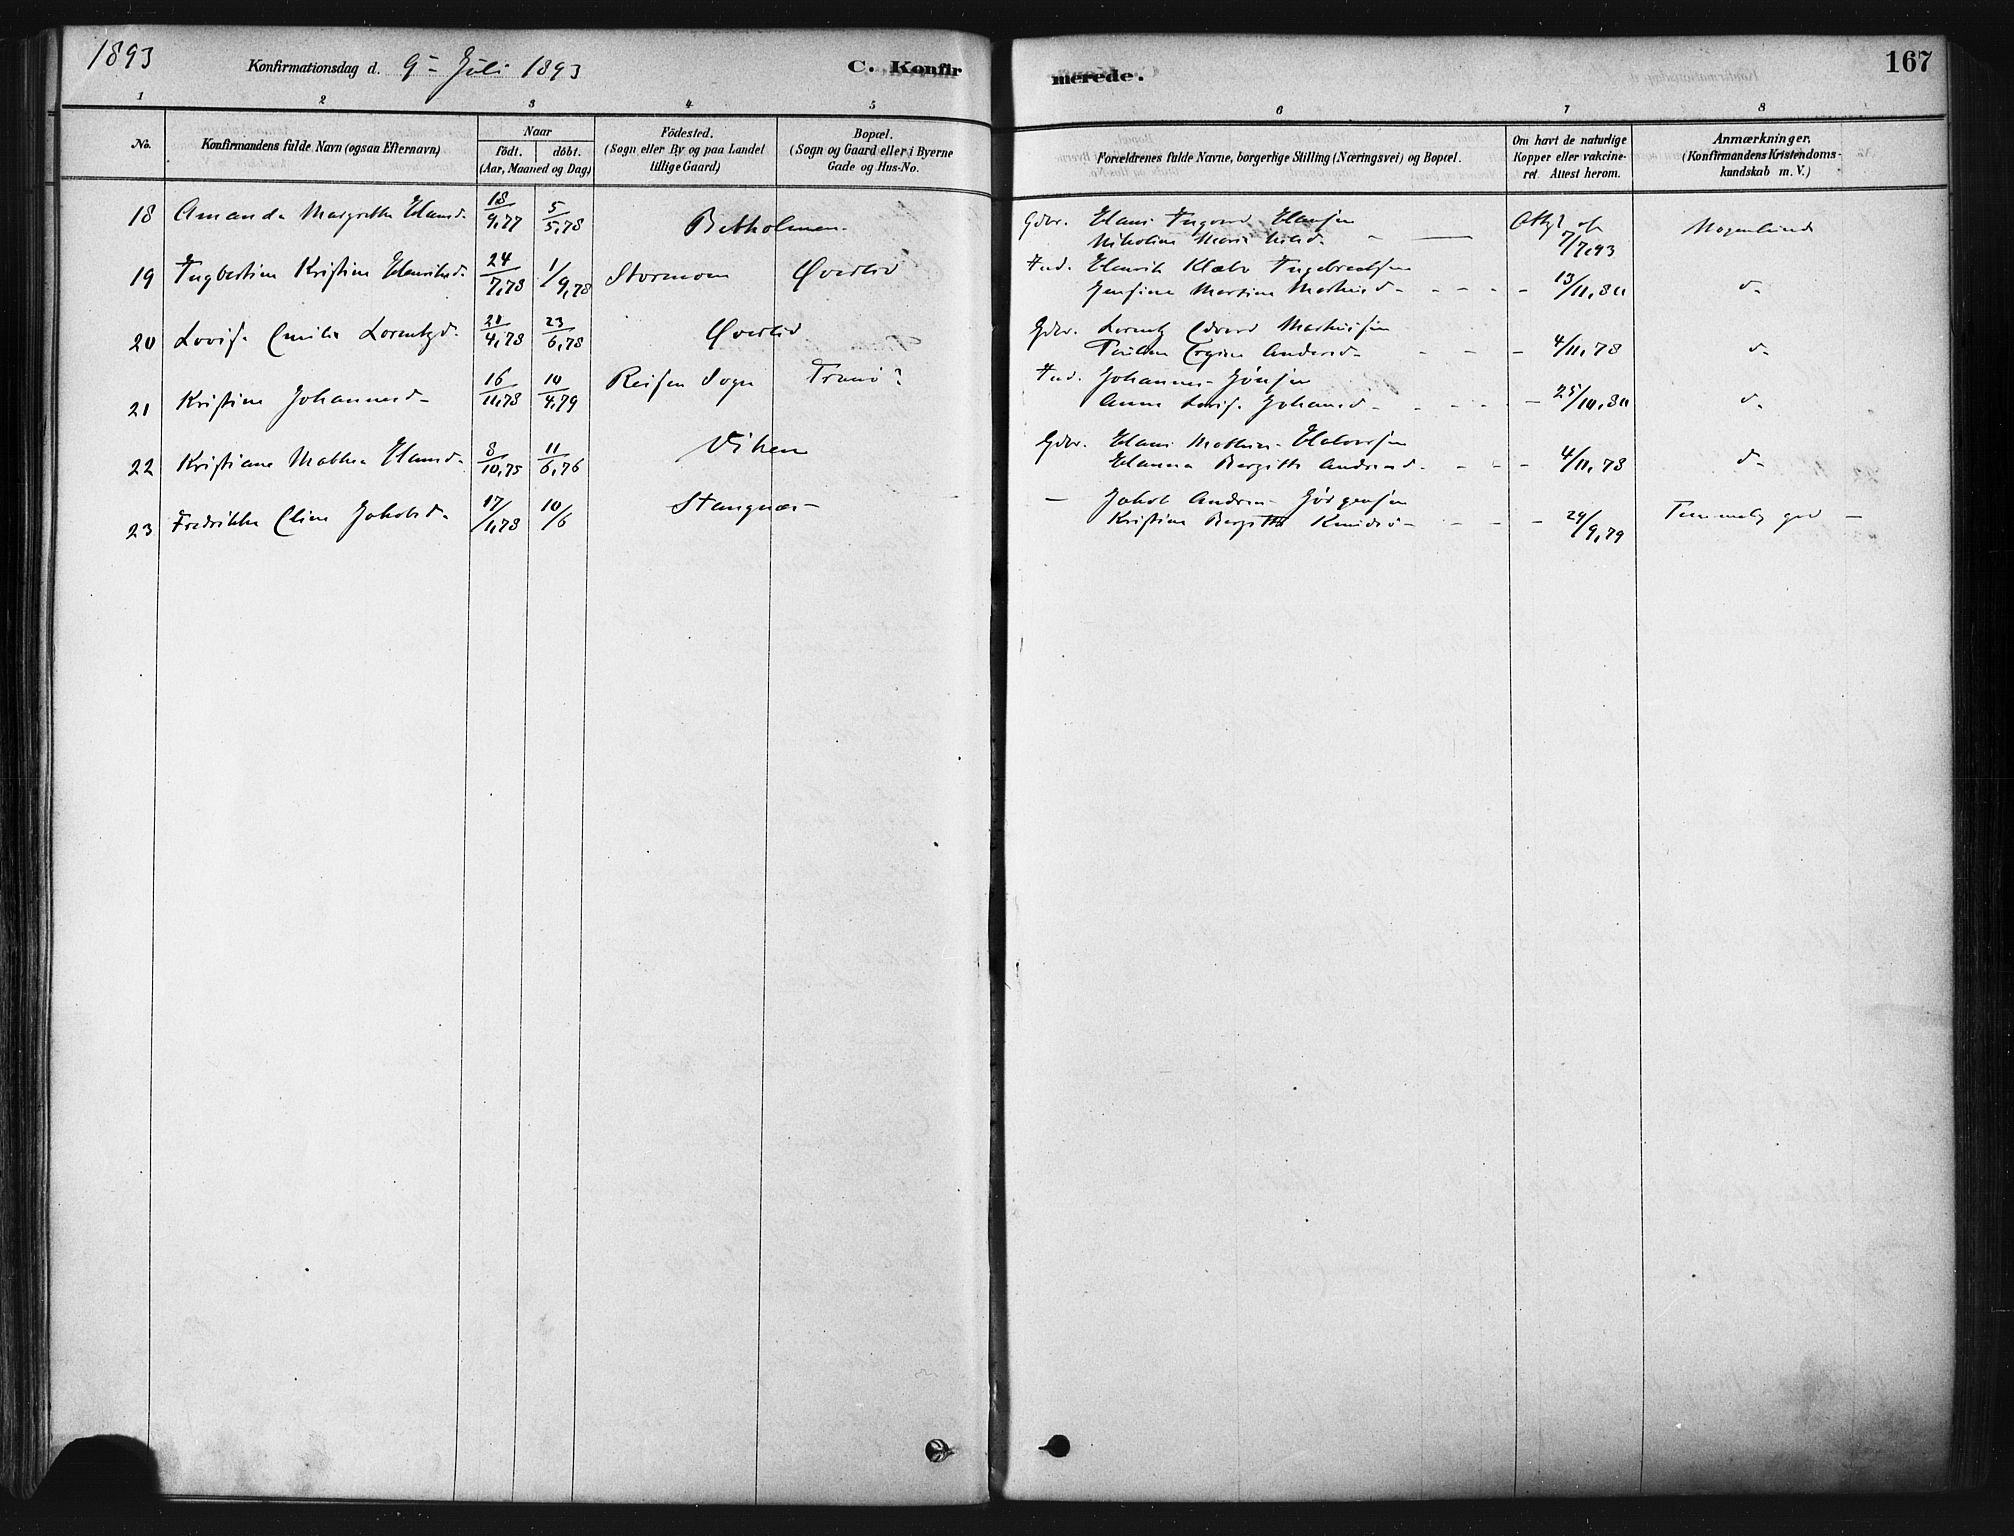 1893
Konfirmationsdag d. 9- Juli 1893
C. Konfirmerede.
167
1 2 3 4 5 6 7 8
No.
Konfirmandens fulde Navn (ogsaa Efternavn)
Naar
födt. döbt.
(Aar, Maaned og Dag)
Födested.
(Sogn eller By og paa Landet
tillige Gaard)
Bopæl.
(Sogn og Gaard eller i Byerne
Gade og Hus-No.
Forældrenes fulde Navne, borgerlige Stilling (Næringsvei) og Bopæl.
Om havt de naturlige
Kopper eller vakcine-
ret. Attest herom.
Anmærkninger.
(Konfirmandens Kristendoms-
kundskab m. V.)
18 Amanda Margrethe Hansd. 18/9,77 5/5,78 Gdbr. Hans Ingvard Hansen
Nikoline Marie 7/7,93
19 Ingbertine Kristine Henriksd. 24/7,78 1/9,78 Stormoen Øverlid Ind. Henrik Klæbo Ingebrechtsen
Jensine Martine 13/11,80 d-
20 Lovise Emilie Lorentzd. 20/4,78 23/6,78 Øverlid Gdbr. Lorentz Edvard Mathisen
Andersd- 4/11,78 d-
21 Kristine Johannesd- 16/11,78 10/4,79 Reisen Sogn Tranø? Ind. Johannes Jönsen
Anne Lovise Johansd- 25/10,80 d-
22 Kristiane Mathea Hansd. 8/10,75 11/6,76 Viken Gdbr. Hans Mathias Halvorsen
Hanna Bergitte Andreasd. 4/11,78 d-
23 Fredrikke Eline Jakobsd. 17/1,78 10/6 Stangnæs - Jakob Andreas Jörgensen
Kristine Bergitte Knudsd- 29/9,79 Temmelig god -